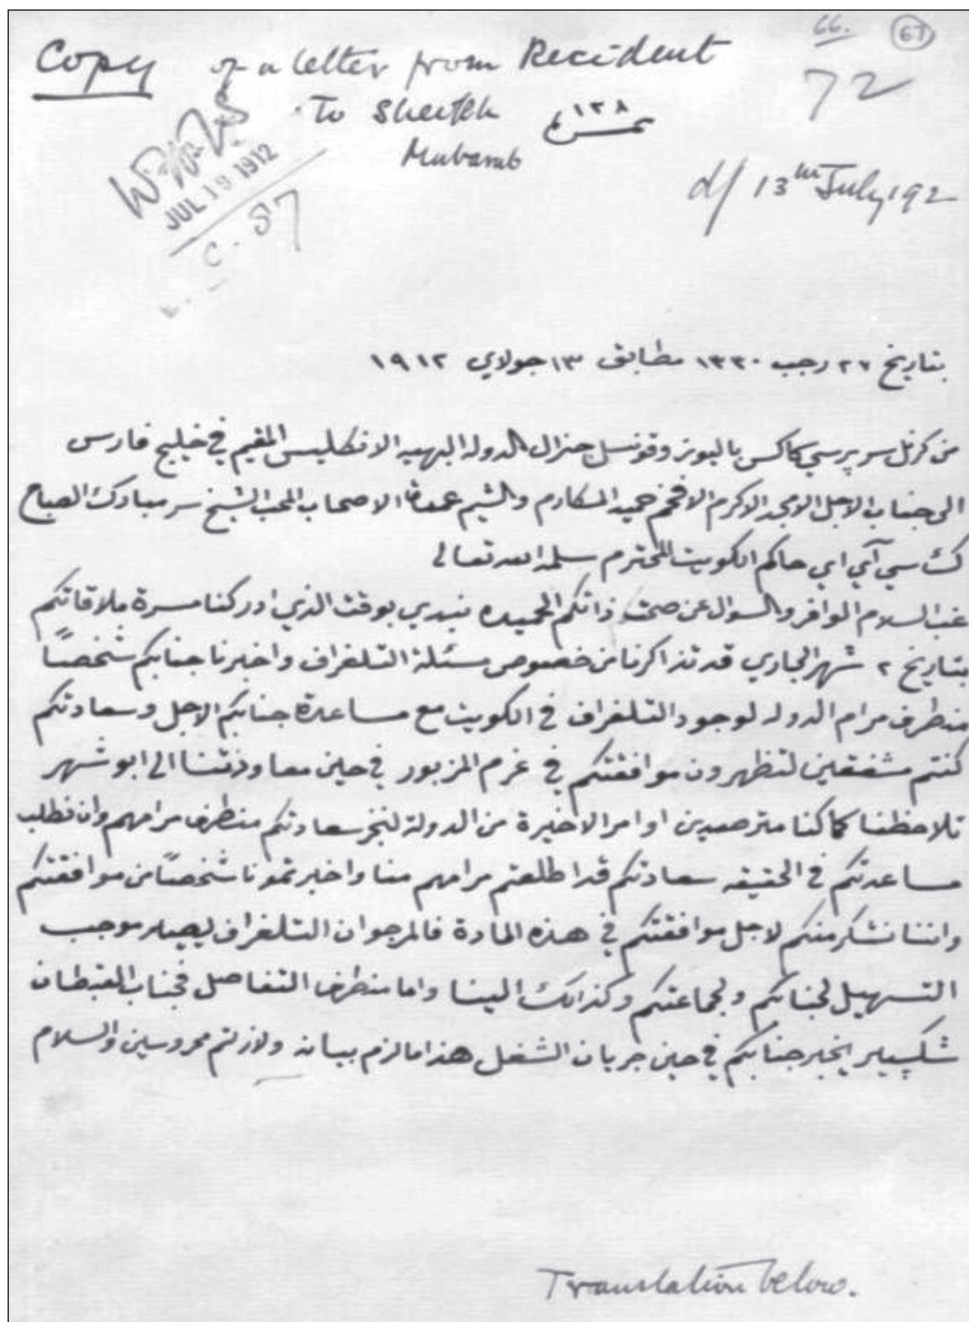 66. 67
Copy of a letter from Recident
72
To Sheikh ١٢٨
Mubarak
JUL 19 1912
d/ 13th July 192
C - 87
بتاريخ ٢٧ رجب ١٣٣٠ مطابق ١٣ جولاي ١٩١٢
من كرنل سر پرسي كاكس باليوز وقونسل جنرال الدولة البهيه الانكليس المقيم في خليج فارس
الى جناب الاجل الامجد الاكرم الافخم حميد المكارم والشيم عمدة الاصحاب المحب الشيخ سر مبارك الصباح
كي سي آي اي حاكم الكويت المحترم سلمه الله تعالى
غب السلام الوافر والسوال عن صحة ذاتكم الحميده نبدي بوقت الذي ادركنا مسرة ملاقاتكم
بتاريخ ٢ شهر الجاري قد تذاكرنا من خصوص مسئلة التلغراف واخبرنا جنابكم شخصاً
منطرف مرام الدوله لوجود التلغراف في الكويت مع مساعدة جنابكم الاجل وسعادتكم
كنتم مشفقين لتظهرون موافقتكم في غرم المزبور في حين معاودتنا الى ابوشهر
تلاحظنا كما كنا مترصدين اوامر الاخيرة من الدولة لنخبر سعادتكم منطرف مرامهم وان نطلب
مساعدتكم في الحقيقه سعادتكم قد اطلعتم مرامهم منا واخبرتمونا شخصاً من موافقتكم
واننا نشكر منكم لاجل موافقتكم في هذه المادة فالمرجو ان التلغراف يصير موجب
التسهيل لجنابكم ولجماعتكم وكذالك الينا واما منطرف التفاصل فجناب القبطان
شكسپير يخبر جنابكم في حين جريان الشغل هذا ما لزم بيانه ولازلتم محروسين والسلام
Translation below.